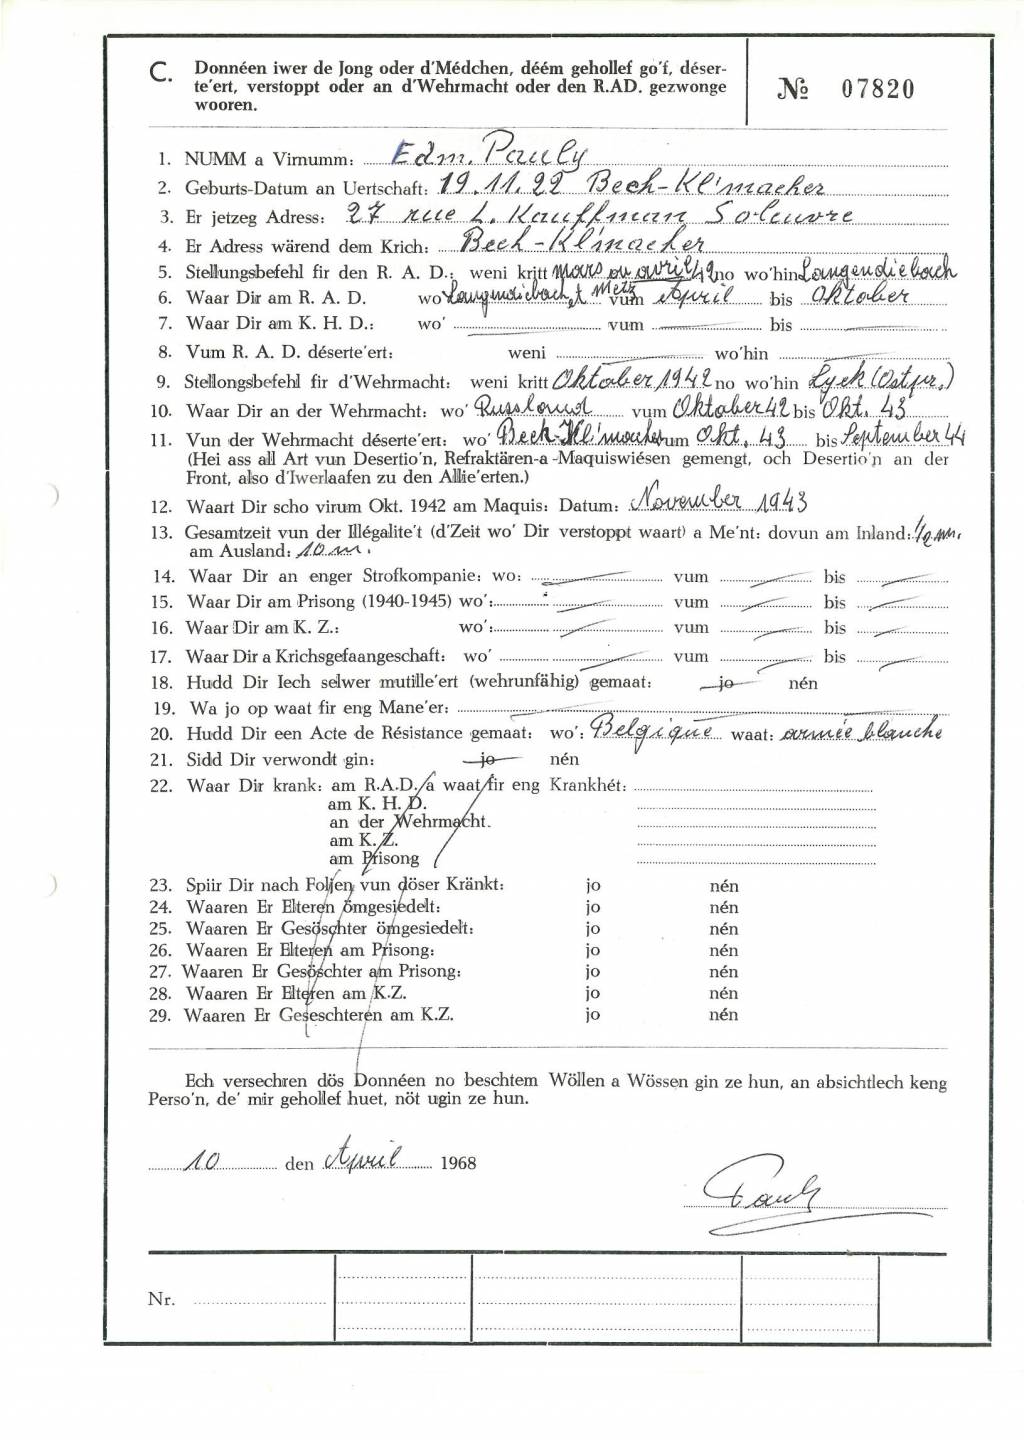 C. Donnéen iwer de Jong oder d'Médchen, déém gehollef go'f, déser-
te'ert, verstoppt oder an d'Wehrmacht oder den R.AD. gezwonge
wooren.
№ 07820
1. NUMM a Virnumm: Edm. Pauly
2. Geburts-Datum an Uertschaft: 19.11.22 Bech-Kl'macher
3. Er jetzeg Adress: 27 rue L. Kauffman Soleuvre
4. Er Adress wärend dem Krich: Bech-Kl'macher
5. Stellungsbefehl fir den R. A. D.: weni kritt mars ou avril 42 no wo'hin Langendiebach
6. Waar Dir am R. A. D. wo Langendiebach et Metz vum April bis Oktober
7. Waar Dir am K. H. D.: wo' vum bis
8. Vum R. A. D. déserte'ert: weni wo'hin
9. Stellongsbefehl fir d'Wehrmacht: weni kritt Oktober 1942 no wo'hin Lyck (Ostpr.)
10. Waar Dir an der Wehrmacht: wo' Russland vum Oktober 42 bis Okt. 43
11. Vun der Wehrmacht déserte'ert: wo' Bech-Kl'macher vum Okt. 43 bis September 44
(Hei ass all Art vun Desertio'n, Refraktären-a-Maquiswiésen gemengt, och Desertio'n an der
Front, also d'Iwerlaafen zu den Allie'erten.)
12. Waart Dir scho virum Okt. 1942 am Maquis: Datum: November 1943
13. Gesamtzeit vun der Illégalite't (d'Zeit wo' Dir verstoppt waart) a Me'nt: dovun am Inland: 1/2 m.
am Ausland: 10 m.
14. Waar Dir an enger Strofkompanie: wo: vum bis
15. Waar Dir am Prisong (1940-1945) wo': vum bis
16. Waar Dir am K. Z.: wo': vum bis
17. Waar Dir a Krichsgefaangeschaft: wo' vum bis
18. Hudd Dir Iech selwer mutille'ert (wehrunfähig) gemaat: jo nén
19. Wa jo op waat fir eng Mane'er:
20. Hudd Dir een Acte de Résistance gemaat: wo': Belgique waat: armée blanche
21. Sidd Dir verwondt gin: jo nén
22. Waar Dir krank: am R.A.D. a waat fir eng Krankhét:
am K. H. D.
an der Wehrmacht.
am K. Z.
am Prisong
23. Spiir Dir nach Foljen vun döser Kränkt: jo nén
24. Waaren Er Elteren ömgesiedelt: jo nén
25. Waaren Er Gesöschter ömgesiedelt: jo nén
26. Waaren Er Elteren am Prisong: jo nén
27. Waaren Er Gesöschter am Prisong: jo nén
28. Waaren Er Elteren am K.Z. jo nén
29. Waaren Er Geseschteren am K.Z. jo nén
Ech versechren dös Donnéen no beschtem Wöllen a Wössen gin ze hun, an absichtlech keng
Perso'n, de' mir gehollef huet, nöt ugin ze hun.
10 den April 1968
Pauly
Nr.